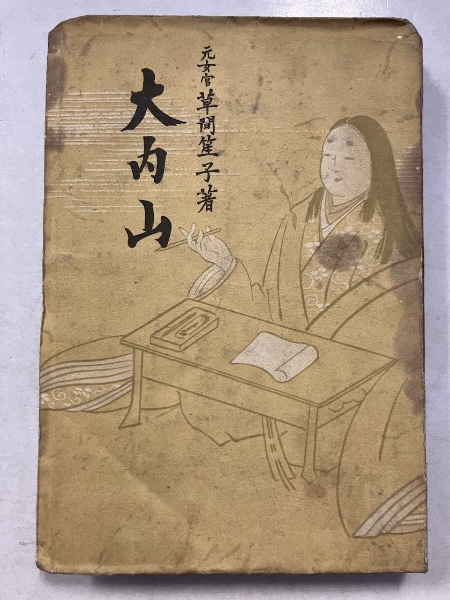 元女官 草間笙子著
大内山